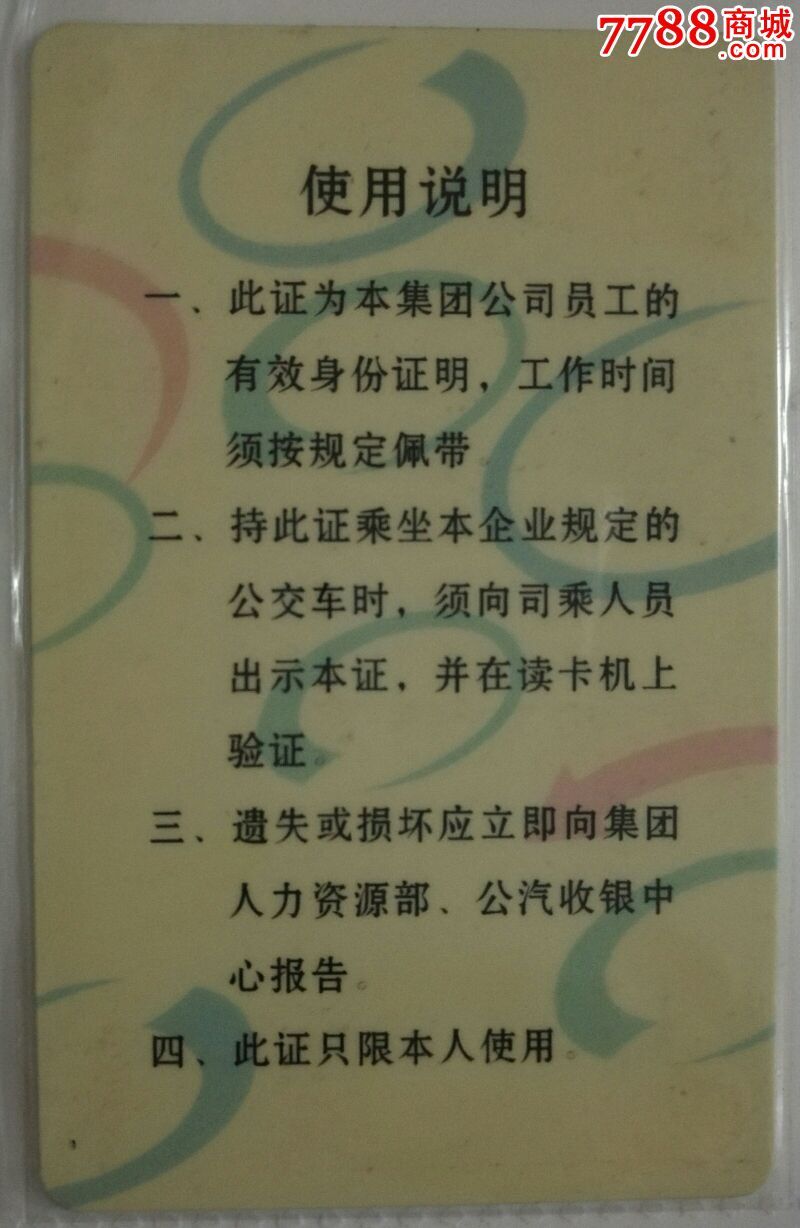 7788商城
.com
使用说明
一、此证为本集团公司员工的
有效身份证明，工作时间
须按规定佩带。
二、持此证乘坐本企业规定的
公交车时，须向司乘人员
出示本证，并在读卡机上
验证。
三、遗失或损坏应立即向集团
人力资源部、公汽收银中
心报告。
四、此证只限本人使用。